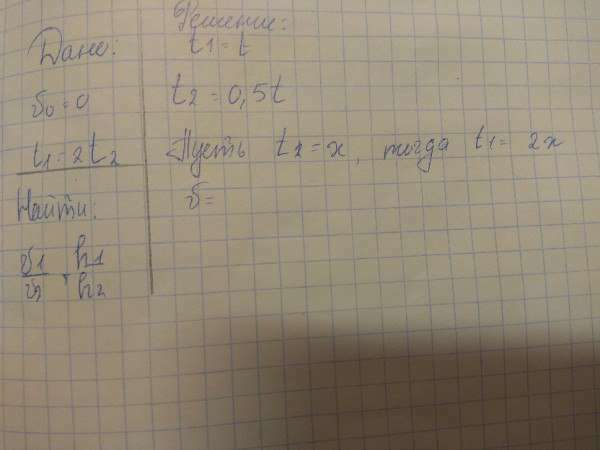 Дано:
υ₀ = 0
t₁ = 2t₂
Найти:
υ₁/υ₂, h₁/h₂
Решение:
t₁ = t
t₂ = 0,5t
Пусть t₂ = x, тогда t₁ = 2x
υ =